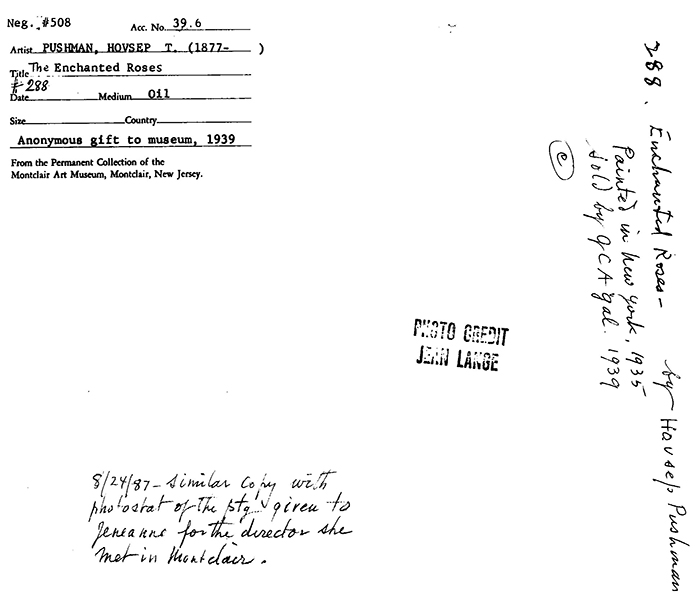 Neg. #508 Acc. No. 39.6
Artist PUSHMAN, HOVSEP T. (1877- )
Title The Enchanted Roses
#288
Date Medium Oil
Size Country
Anonymous gift to museum, 1939
From the Permanent Collection of the
Montclair Art Museum, Montclair, New Jersey.
288. Enchanted Roses - by Hovsep Pushman
Painted in New York, 1935
Sold by GCA gal. 1939
©
PHOTO CREDIT
JEAN LANGE
8/24/87 - Similar copy with
photostat of the ptg given to
Jeneanne for the director she
met in Montclair.